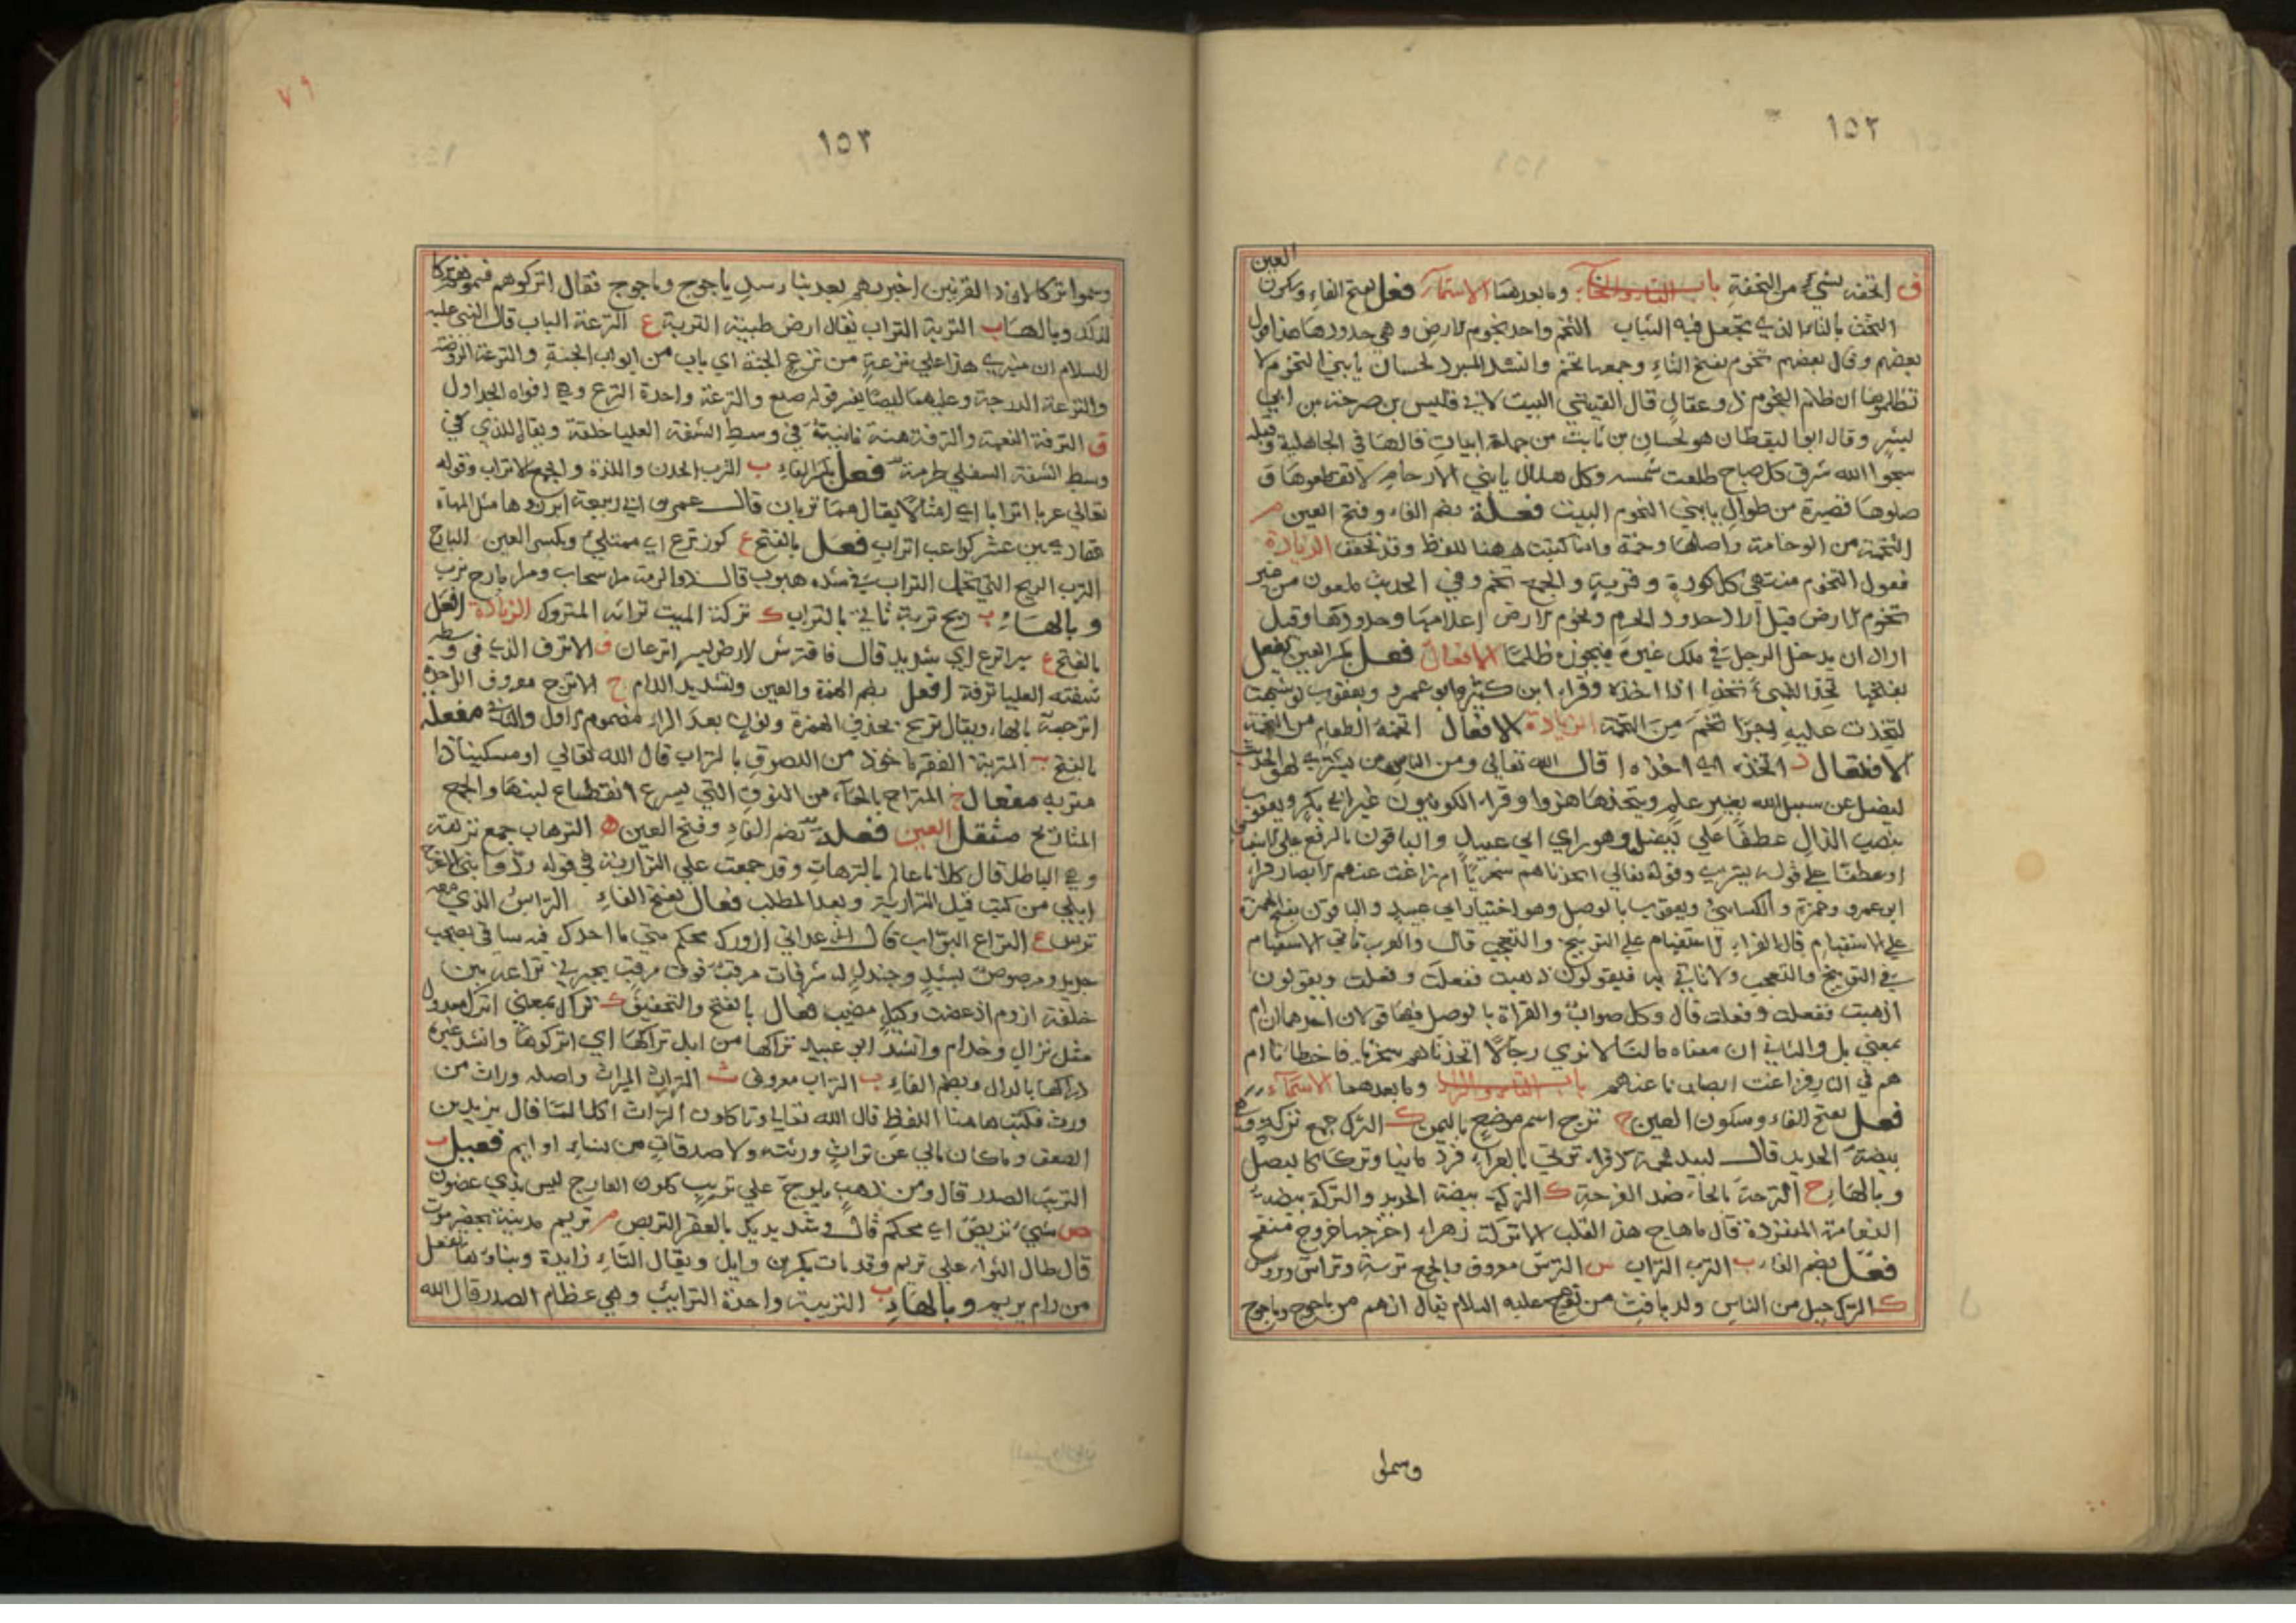 ١٥٢
ف اتحفه بشيء من التحفة باب التاء والخاء وما بعدهما الاسماء فعل بفتح الفاء وسكون العين
التخت بالتاء الذي تجعل فيه الثياب التخم واحد تخوم الارض وهي حدودها هذا قول
بعضهم وقال بعضهم تخوم بفتح التاء وجمعها تخم وانشد المبرد لحسان يا بني التخوم لا
تظلموها ان ظلم التخوم ذو عقال قال القتيبي البيت لابي قيس بن صرمة بن ابي
وقال ابو اليقظان هو لحسان بن ثابت من جملة ابيات قالها في الجاهلية وقبله
سبحوا الله شرق كل صباح طلعت شمسه وكل هلال يا بني الارحام لا تقطعوها و
صلوها قصيرة من طوال يا بني التخوم البيت فعلة بضم الفاء وفتح العين م
التخمة من الوخامة واصلها وخمة وانما كتبت ههنا للفظ وقد تخفف الزيادة
فعول التخوم منتهى كل كورة وقرية والجمع تخم وفي الحديث ملعون من غير
تخوم الارض قيل اراد حدود الحرم وتخوم الارض اعلامها وحدودها وقيل
اراد ان يدخل الرجل في ملك غيره فيحوزه ظلما الافعال فعل بكسر العين يفعل
بفتحها تخذ الشيء تخذا اذا اخذه وقرا ابن كثير وابو عمرو ويعقوب لو شئت
لتخذت عليه اجرا تخم من التخمة الزيادة الافعال اتخمه الطعام من التخمة
الافتعال ذ اتخذه اي اخذه قال الله تعالى ومن الناس من يشتري لهو الحديث
ليضل عن سبيل الله بغير علم ويتخذها هزوا وقرا الكوفيون غير ابي بكر ويعقوب
بنصب الذال عطفا على ليضل وهو راي ابي عبيد والباقون بالرفع على
او عطفا على قوله يشتري وقوله تعالى اتخذناهم سخريا ام زاغت عنهم الابصار قرا
ابو عمرو وحمزة والكسائي ويعقوب بالوصل وهو اختيار ابي عبيد والباقون بفتح الهمزة
على الاستفهام قال الفراء الاستفهام على التوبيخ والتعجب قال والعرب تاتي الاستفهام
في التوبيخ والتعجب ولا تاتي به فيقولون ذهبت ففعلت وفعلت ويقولون
اذهبت ففعلت وفعلت قال وكل صواب والقراة بالوصل فيها قولان احدهما ان ام
بمعنى بل والثاني ان معناه ما لنا لا نرى رجالا اتخذناهم سخريا فاخطانا ام
هم في النار فزاغت ابصارنا عنهم باب التاء والراء وما بعدهما الاسماء
فعل بفتح الفاء وسكون العين ج ترج اسم موضع باليمن ك الترك جمع تركة وهي
بيضة الحديد قال لبيد
وبالهاء ح الترحة بالحاء ضد الفرحة ك التركة بيضة الحديد والتركة بيضة
النعامة المنفردة قال ما هاج هذا القلب الا تركة زهراء اخرجها خروج منفح
فعل بضم الفاء ب الترب التراب س الترس معروف والجمع ترسة وتراس وتروس
ك الترك جيل من الناس ولد يافث من نوح عليه السلام يقال انهم من ياجوج وماجوج
وسموا
٧٩
١٥٣
وسموا تركا لان ذا القرنين اخبر بهم بعد بناء سد ياجوج وماجوج فقال اتركوهم فسموا تركا
لذلك وبالهاء ب التربة التراب يقال ارض طيبة التربة ع الترعة الباب قال النبي عليه
السلام ان منبري هذا على ترعة من ترع الجنة اي باب من ابواب الجنة والترعة الروضة
والترعة الدرجة وعليهما ايضا يفسر قوله صلع والترعة واحدة الترع وهي افواه الجداول
ف الترفة النعمة والترفة هنة ناتية في وسط الشفة العليا خلقة ويقال للذي في
وسط الشفة السفلى طرمة فعل بكسر الفاء ب الترب الخدن واللدة والجمع الاتراب وقوله
تعالى عربا اترابا اي امثالا يقال هما تربان قال عمر بن ابي ربيعة ابرزوها مثل المهاة
تهادى بين عشر كواعب اتراب فعل بالفتح ع كوز ترع اي ممتلئ وبكسر العين
الترب الريح التي تحمل التراب في شدة هبوب قال ذو الرمة مرا سحاب ومرا بارح ترب
وبالهاء ب ريح تربة تاتي بالتراب ك تركة الميت تراثه المتروك الزيادة افعل
بالفتح ع سير اترع اي شديد قال فافترش الارض بسير اترعا ف الاترف الذي في وسط
شفته العليا ترفة افعل بضم الهمزة والعين وتشديد اللام ج الاترج معروف الواحدة
اترجة بالهاء ويقال ترنج بحذف الهمزة ونون بعد الراء مضموم الاول والثاني مفعلة
بالفتح ب المتربة الفقر ماخوذ من اللصوق بالتراب قال الله تعالى او مسكينا ذا
متربه مفعال ح المتراح بالحاء من النوق التي يسرع انقطاع لبنها والجمع
المتاريح مثقل العين فعلة بضم الفاء وفتح العين ه الترهات جمع ترهة
وهي الباطل قال
فعال بفتح الفاء التراس الذي معه
ترس ع التراع البواب قال
خلفة فعال بالفتح والتخفيف ك تراك بمعنى اترك معدول
مثل نزال وحذام وانشد ابو عبيد تراكها من ابل تراكها اي اتركوها وانشد غيره
دراكها بالدال وبضم الفاء ب التراب معروف ث التراث الميراث واصله وراث من
ورث فكتب هاهنا للفظ قال الله تعالى وتاكلون التراث اكلا لما قال يزيد بن
الصعق وما كان مالي عن تراث ورثته ولا صدقات من نساء او ايم فعيل ب
التريب الصدر قال ومن ذهب يلوح على تريب كلون العاج ليس بذي غضون
ص شيء تريص اي محكم قال وشد يديك بالعقد التريص م تريم مدينة بحضرموت
قال طال الثواء على تريم وقد نات بكر بن وايل ويقال التاء زايدة وبناؤها تفعل
من رام يريم وبالهاء ب التريبة واحدة الترايب وهي عظام الصدر قال الله